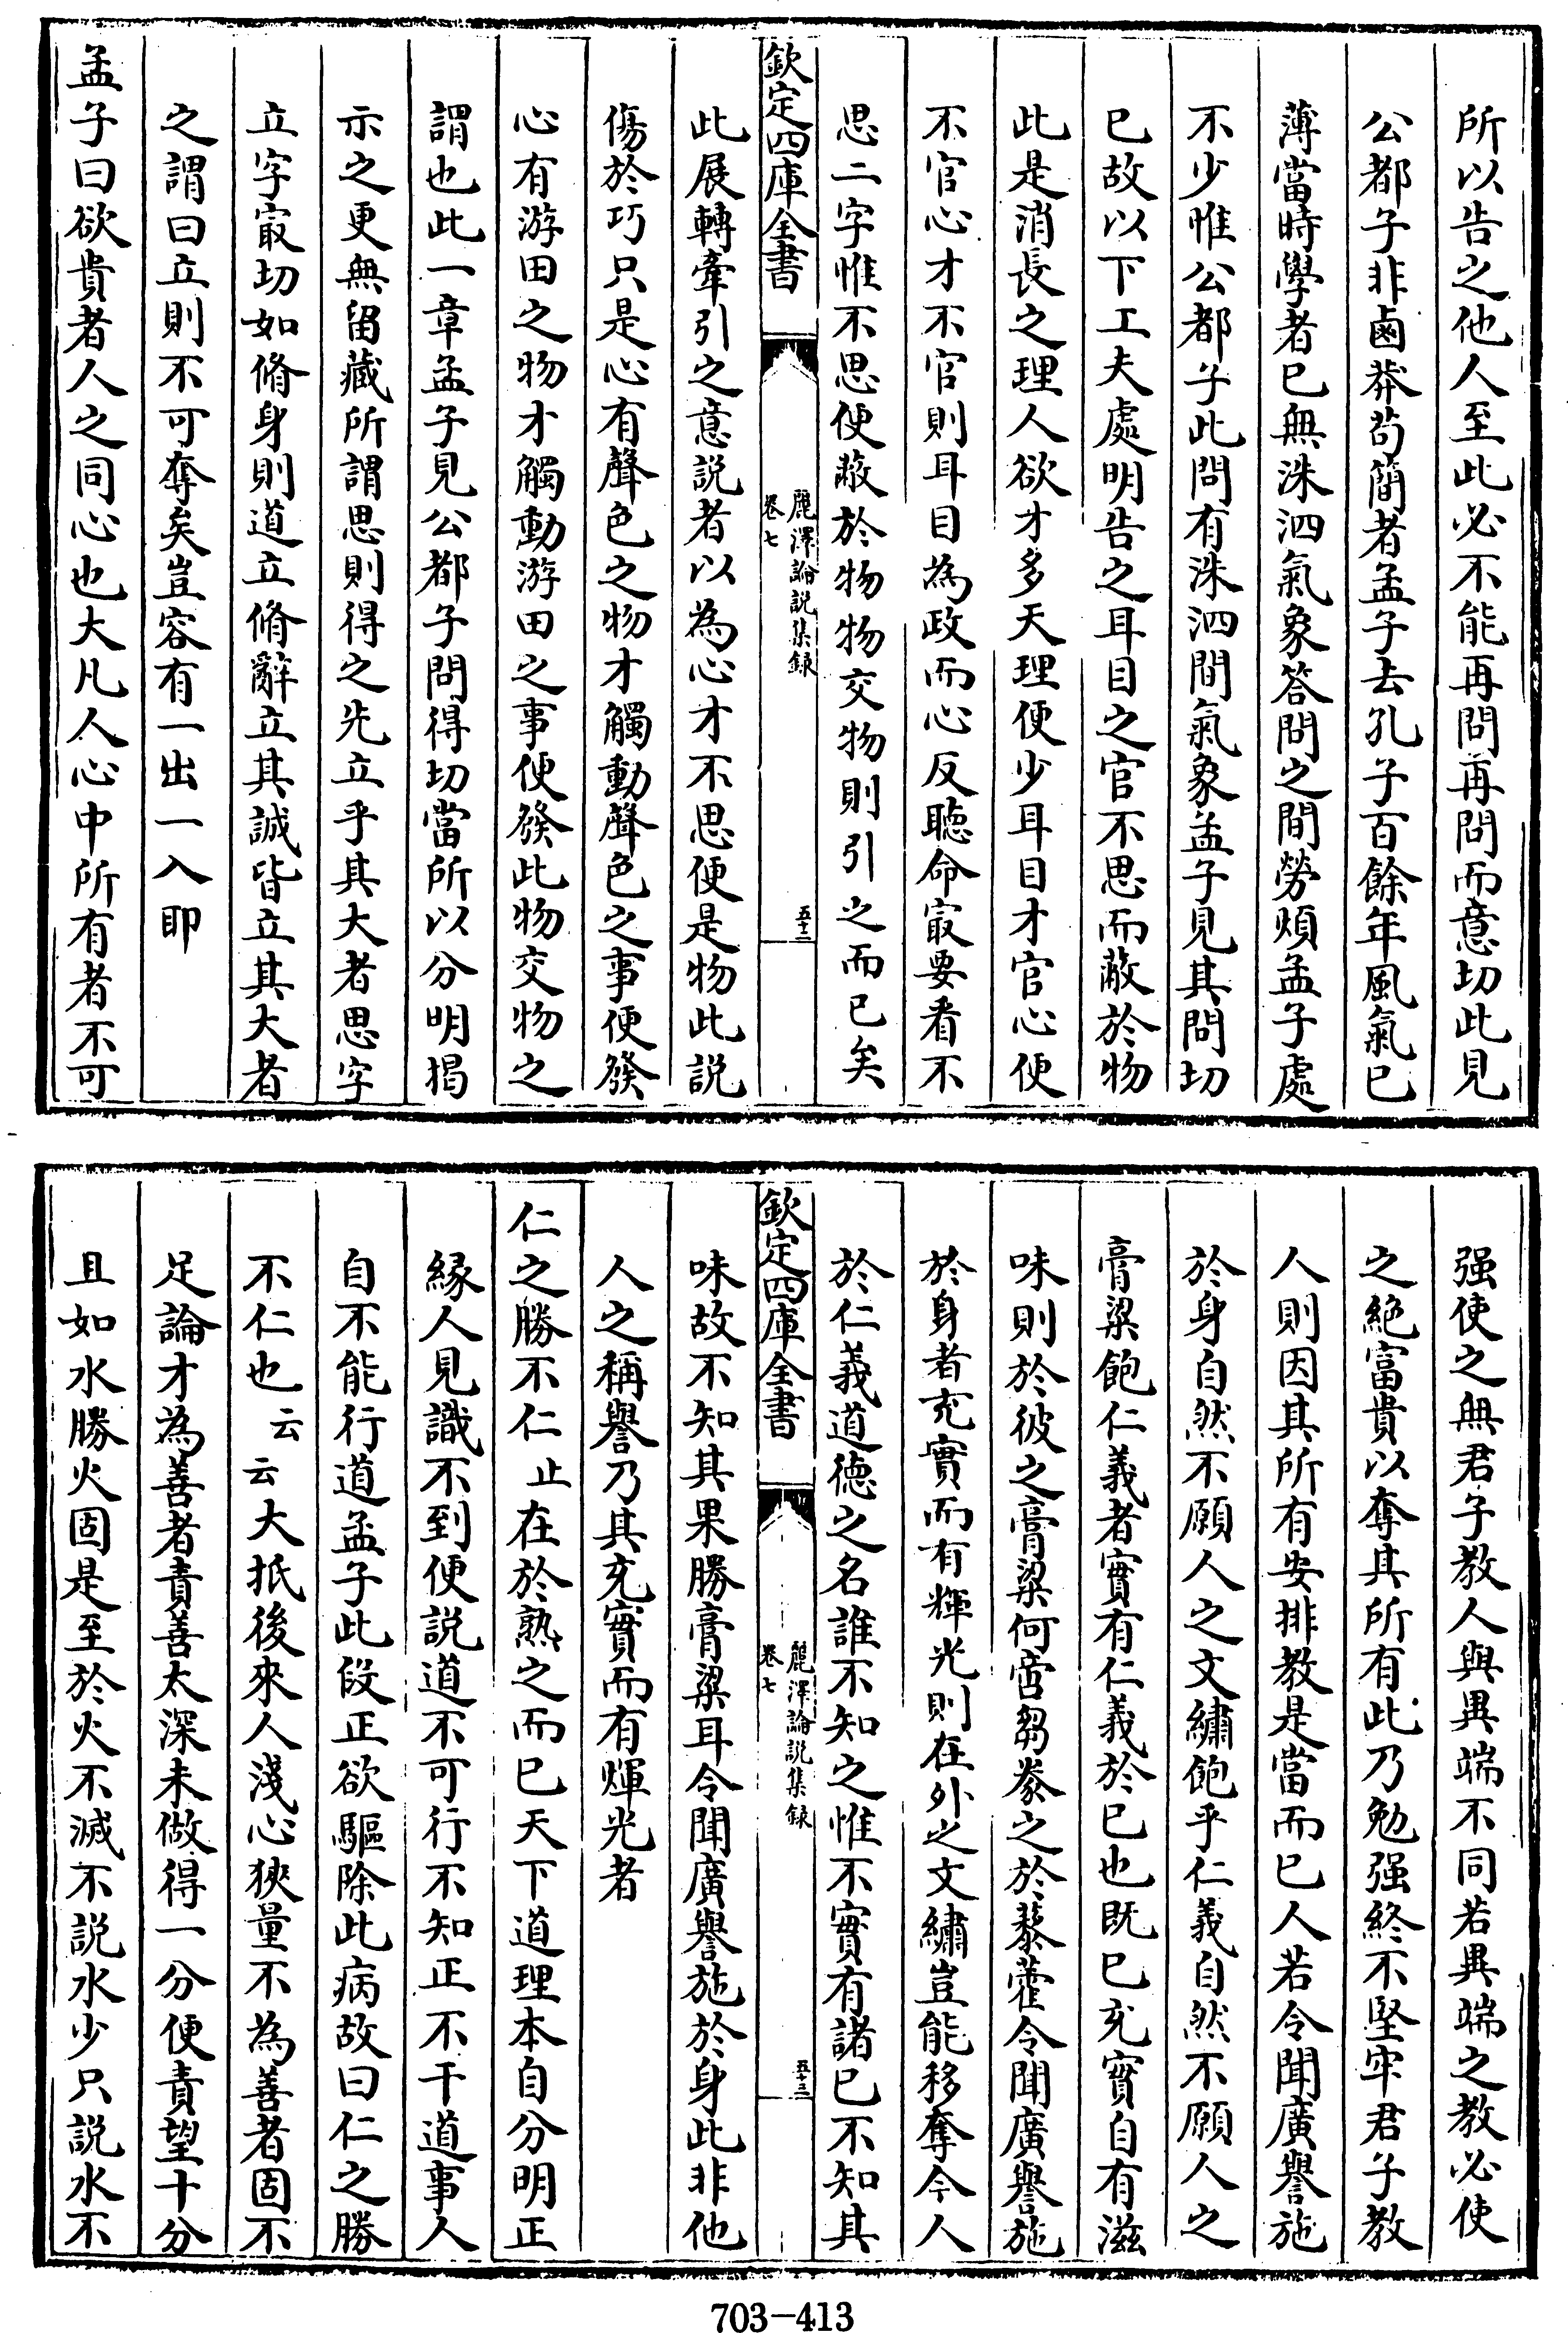 所以告之他人至此必不能再問再問而意切此見
公都子非鹵莽茍簡者孟子去孔子百餘年風氣已
薄當時學者已無洙泗氣象答問之間勞煩孟子處
不少惟公都子此問有洙泗間氣象孟子見其問切
已故以下工夫處明告之耳目之官不思而蔽於物
此是消長之理人欲才多天理便少耳目才官心便
不官心才不官則耳目為政而心反聽命㝡要看不
思二字惟不思便蔽於物物交物則引之而已矣
欽定四庫全書
麗澤論說集録
卷七
五十二
此展轉牽引之意說者以為心才不思便是物此說
傷於巧只是心有聲色之物才觸動聲色之事便發
心有游田之物才觸動游田之事便發此物交物之
謂也此一章孟子見公都子問得切當所以分明揭
示之更無留藏所謂思則得之先立乎其大者思字
立字㝡切如脩身則道立脩辭立其誠皆立其大者
之謂曰立則不可奪矣豈容有一出一入耶
孟子曰欲貴者人之同心也大凡人心中所有者不可
强使之無君子教人與異端不同若異端之教必使
之絶富貴以奪其所有此乃勉强終不堅牢君子教
人則因其所有安排教是當而已人若令聞廣譽施
於身自然不願人之文繡飽乎仁義自然不願人之
膏粱飽仁義者實有仁義於已也既已充實自有滋
味則於彼之膏粱何啻芻豢之於藜藿令聞廣譽施
於身者充實而有輝光則在外之文繡豈能移奪今人
於仁義道德之名誰不知之惟不實有諸已不知其
欽定四庫全書
麗澤論說集録
卷七
五十三
味故不知其果勝膏粱耳令聞廣譽施於身此非他
人之稱譽乃其充實而有煇光者
仁之勝不仁止在於熟之而已天下道理本自分明正
緣人見識不到便說道不可行不知正不干道事人
自不能行道孟子此段正欲驅除此病故曰仁之勝
不仁也云云大抵後來人淺心狹量不為善者固不
足論才為善者責善太深未做得一分便責望十分
且如水勝火固是至於火不滅不說水少只說水不
703-413